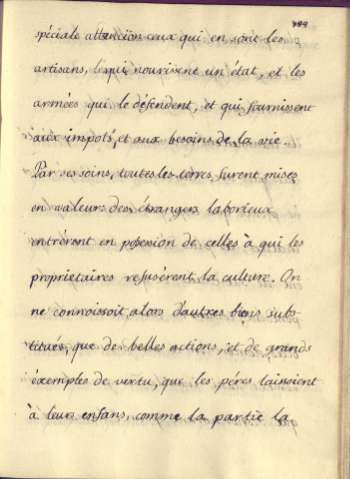 spéciale attencion ceux qui en sont les
artisans, qui nourissent un état, et les
armées qui le défendent, et qui fournissent
aux impots, et aux besoins de la vie.
Par ses soins, toutes les terres furent mises
en valeurs des étrangers laborieux
entrérent en possession de celles à qui les
proprietaires refusérent la culture. On
ne connoissoit alors d'autres biens subs-
titués, que de belles actions, et de grands
éxemples de vertu, que les péres laissoient
à leurs enfans, comme la partie la